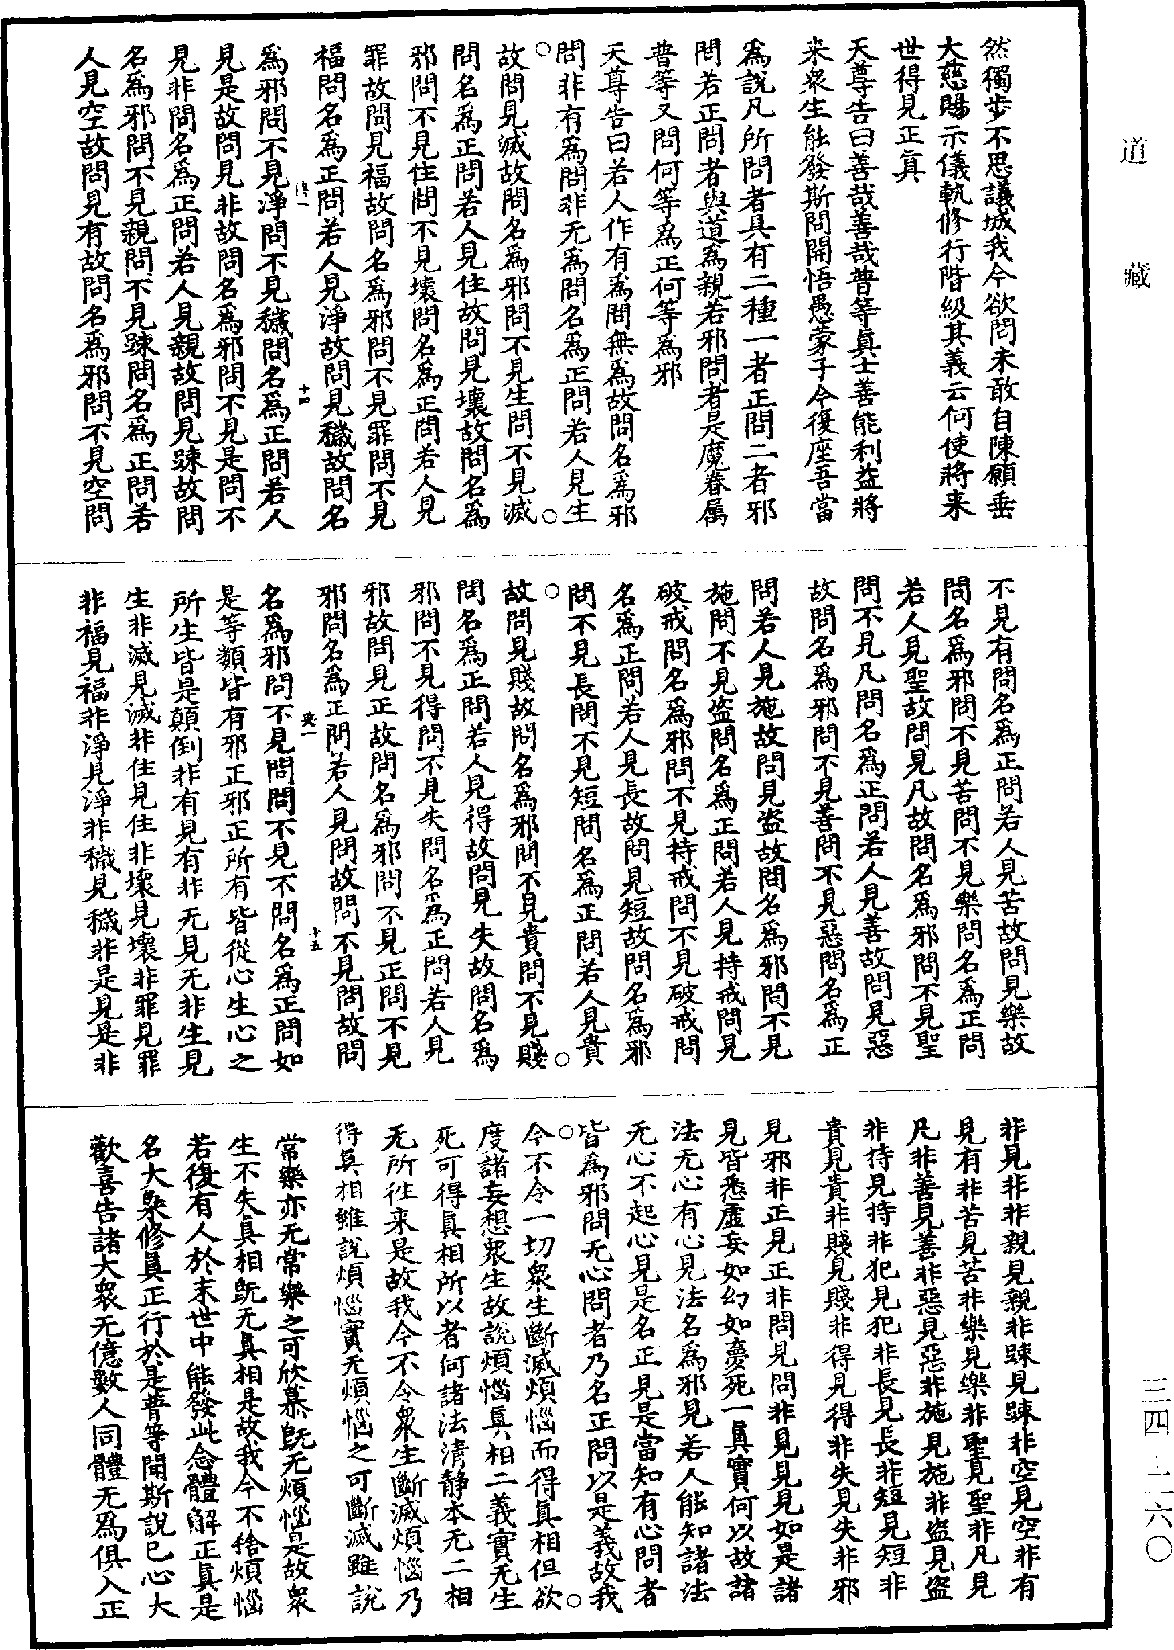 道藏
三四—二六〇
然獨步不思議城我今欲問未敢自陳願垂
大慈賜示儀軌修行階級其義云何使將来
世得見正真
天尊告曰善哉善哉普等真士善能利益將
来衆生能發斯問開悟愚蒙子今復座吾當
爲說凡所問者具有二種一者正問二者邪
問若正問者與道爲親若邪問者是魔眷屬
普等又問何等爲正何等爲邪
天尊告曰若人作有爲問無爲故問名爲邪
問非有爲問非无爲問名爲正問若人見生
故問見滅故問名爲邪問不見生問不見滅
問名爲正問若人見住故問見壞故問名爲
邪問不見住問不見壞問名爲正問若人見
罪故問見福故問名爲邪問不見罪問不見
福問名爲正問若人見淨故問見穢故問名
十四
爲邪問不見淨問不見穢問名爲正問若人
見是故問見非故問名爲邪問不見是問不
見非問名爲正問若人見親故問見踈故問
名爲邪問不見親問不見踈問名爲正問若
人見空故問見有故問名爲邪問不見空問
不見有問名爲正問若人見苦故問見樂故
問名爲邪問不見苦問不見樂問名爲正問
若人見聖故問見凡故問名爲邪問不見聖
問不見凡問名爲正問若人見善故問見惡
故問名爲邪問不見善問不見惡問名爲正
問若人見施故問見盜故問名爲邪問不見
施問不見盜問名爲正問若人見持戒問見
破戒問名爲邪問不見持戒問不見破戒問
名爲正問若人見長故問見短故問名爲邪
問不見長問不見短問名爲正問若人見貴
故問見賤故問名爲邪問不見貴問不見賤
問名爲正問若人見得故問見失故問名爲
邪問不見得問不見失問名爲正問若人見
邪故問見正故問名爲邪問不見正問不見
邪問名爲正問若人見問故問不見問故問
十五
名爲邪問不見問問不見不問名爲正問如
是等類皆有邪正邪正所有皆從心生心之
所生皆是顛倒非有見有非无見无非生見
生非滅見滅非住見住非壞見壞非罪見罪
非福見福非淨見淨非穢見穢非是見是非
非見非非親見親非踈見踈非空見空非有
見有非苦見苦非樂見樂非聖見聖非凡見
凡非善見善非惡見惡非施見施非盜見盜
非持見持非犯見犯非長見長非短見短非
貴見貴非賤見賤非得見得非失見失非邪
見邪非正見正非問見問非見見見如是諸
見皆悉虛妄如幻如憂死一真實何以故諸
法无心有心見法名爲邪見若人能知諸法
无心不起心見是名正見是當知有心問者
皆爲邪問无心問者乃名正問以是義故我
今不令一切衆生斷滅煩惱而得真相但欲
度諸妄想衆生故說煩惱真相二義實无生
死可得真相所以者何諸法清靜本无二相
无所往来是故我今不令衆生斷滅煩惱乃
得真相雖說煩惱實无煩惱之可斷滅雖說
常樂亦无常樂之可欣慕旣无煩惱是故衆
生不失真相旣无真相是故我今不捨煩惱
若復有人於末世中能發此念體解正真是
名大椉修真正行於是普等聞斯說已心大
歡喜告諸大衆无億數人同體无爲俱入正